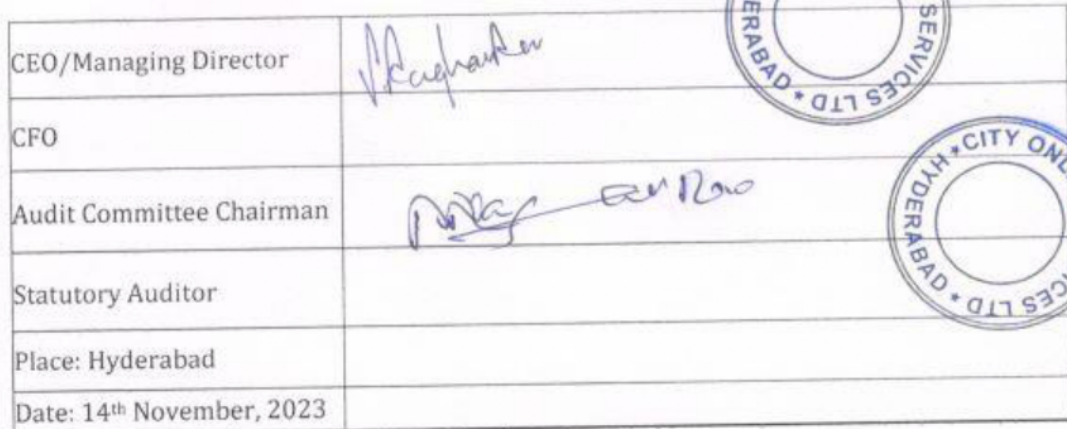 CEO/Managing Director
CFO
Audit Committee Chairman
Statutory Auditor
Place: Hyderabad
Date: 14th November, 2023
ERABAD * SERVICES LTD
HYDERABAD * CITY ONL
CES LTD